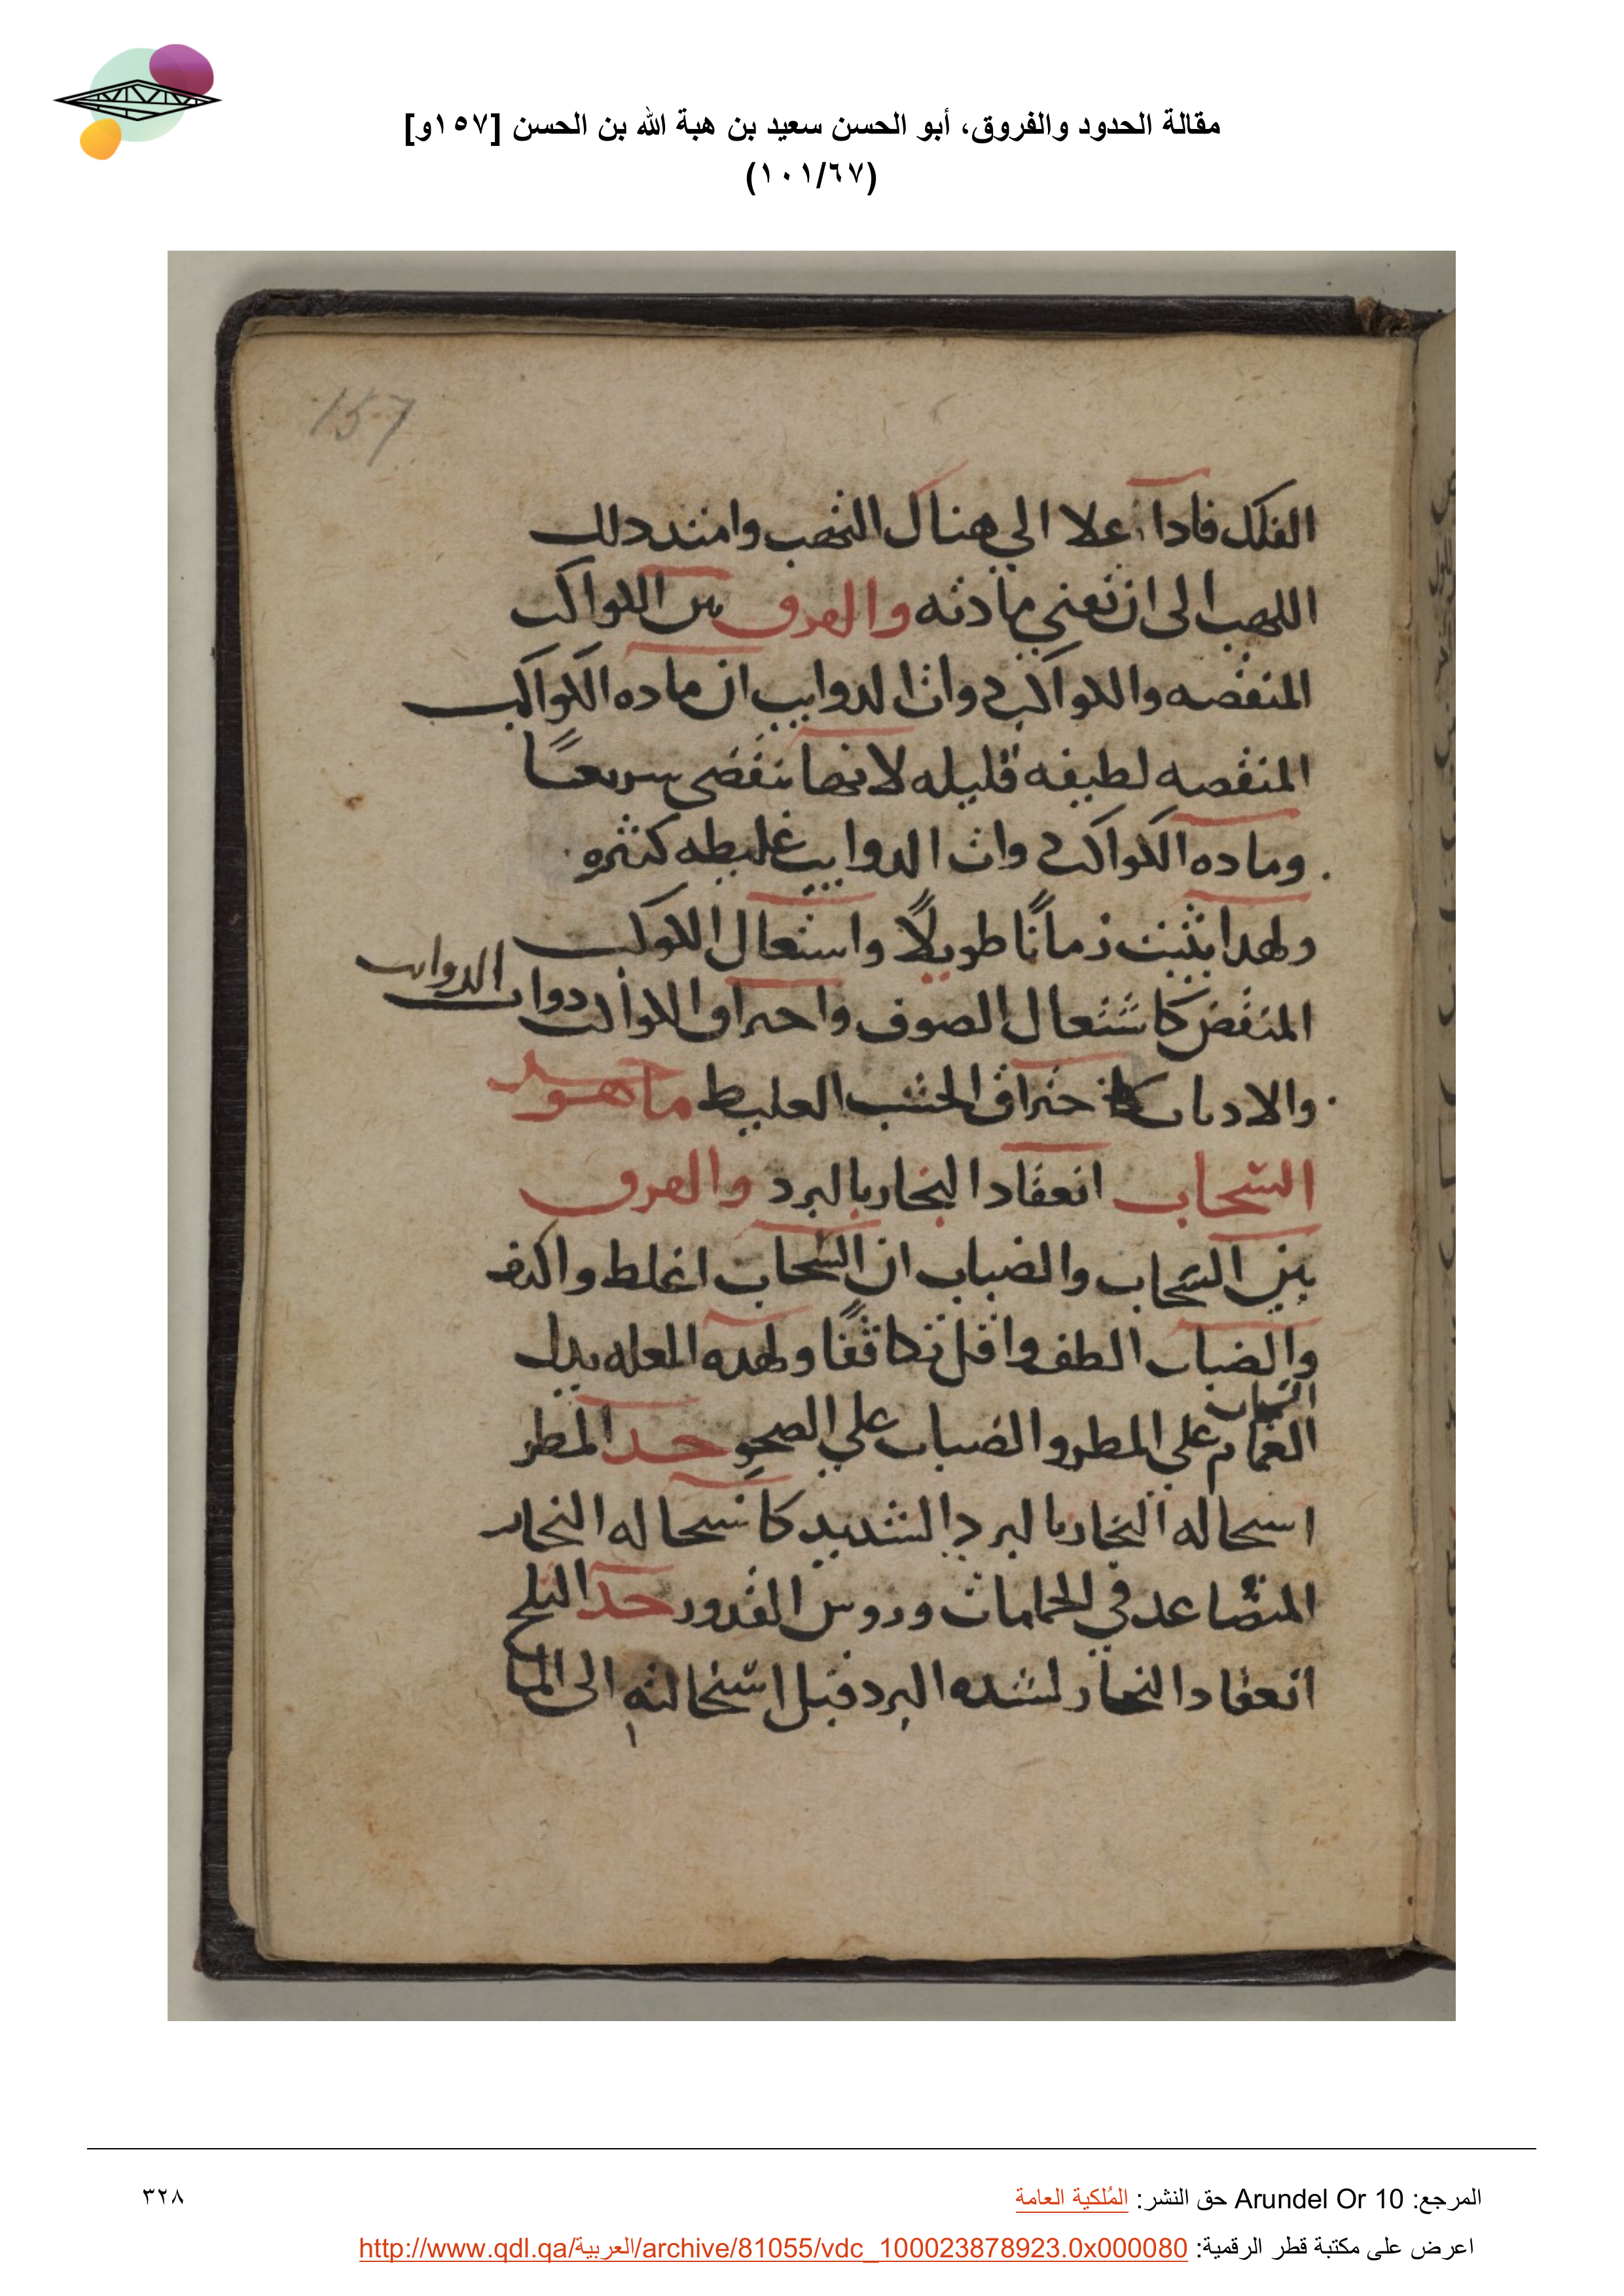 مقالة الحدود والفروق، أبو الحسن سعيد بن هبة الله بن الحسن [١٥٧و]
(١٠١/٦٧)
157
الفلك فادا علا الي هناك التهب وامتد دلك
اللهب الى ان تفني مادته والفرق بين الكواكب
المنقضه والكواكب دوات الدوايب ان ماده الكواكب
المنقضه لطيفه قليله لانها تنقضى سريعًا
وماده الكواكب دوات الدوايب غليظه كثيره
ولهدا يثبت زمانًا طويلًا واشتعال الكوكب
المنقض كاشتعال الصوف واحتراق الكواكب دوات الدوايب
والادناب كاحتراق الخشب الغليظ ما هو حد
السّحاب انعقاد البخار بالبرد والفرق
بين السّحاب والضباب ان السّحاب اغلظ واكثف
والضباب الطف واقل تكاثفًا ولهده العله يدل
السّحاب
الغمام علي المطر والضباب علي الصحو حد المطر
استحاله البخار بالبرد الشديد كاستحاله البخار
المتصاعد في الحمامات وروس القدور حد الثلج
انعقاد البخار لشده البرد قبل استحالته الى الما
المرجع: Arundel Or 10 حق النشر: المُلكية العامة
٣٢٨
اعرض على مكتبة قطر الرقمية: http://www.qdl.qa/العربية/archive/81055/vdc_100023878923.0x000080